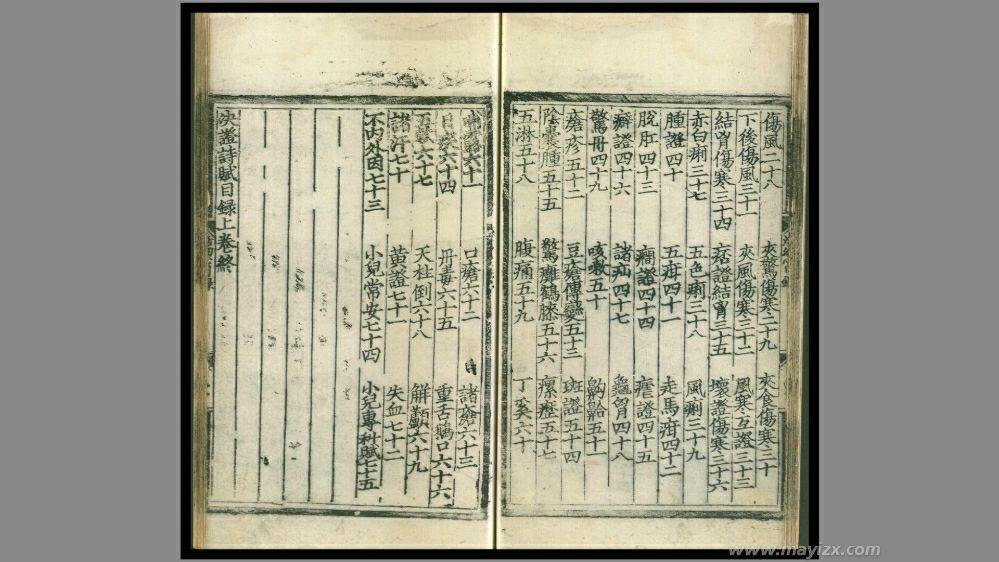 傷風二十八 夾驚傷寒二十九 夾食傷寒三十
下後傷風三十一 夾風傷寒三十二 風寒互證三十三
結胷傷寒三十四 痞證結胷三十五 壞證傷寒三十六
赤白痢三十七 五色痢三十八 風痢三十九
腫證四十 五疳四十一 走馬疳四十二
脫肛四十三 癎證四十四 瘧證四十五
癖證四十六 諸疝四十七 龜胷四十八
驚丹四十九 咳嗽五十 齁䶎五十一
瘡疹五十二 豆瘡傳變五十三 斑證五十四
陰囊腫五十五 鶴膝五十六 瘰癧五十七
五淋五十八 腹痛五十九 丁奚六十
六十一 口瘡六十二 諸瘡六十三
目疾六十四 丹毒六十五 重舌鵝口六十六
五 六十七 天柱倒六十八 解顱六十九
諸汗七十 黄證七十一 失血七十二
不内外因七十三 小兒常安七十四 小兒專科賦七十五
決證詩賦目録上卷終
www.mayizx.com